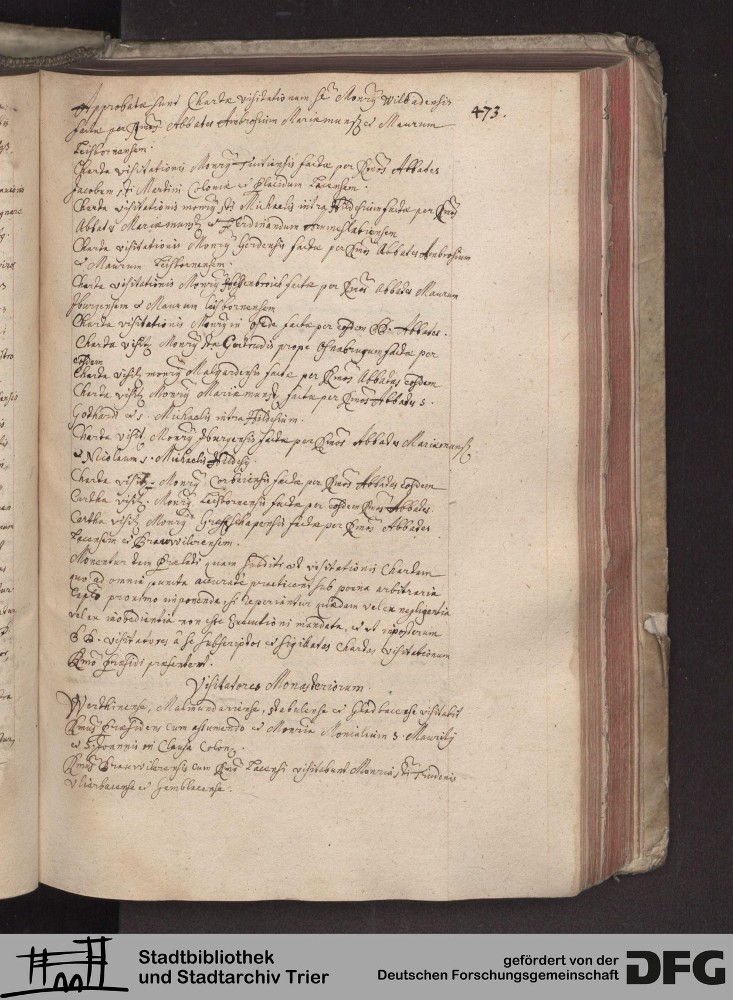 473.
Approbatae sunt Chartae visitationum Monrij Wilbadensis
factae per Rmos Abbates Ambrosium Mariaemunst et Maurum
Leisbornensem.
Charta visitationis Monrij Tuitiensis factae per Rmos Abbates
Jacobum Sti Martini Coloniae et Placidum Lacensem.
Charta visitationis monrij Sti Michaelis intra Hildesium factae per Rmos
Abbates Mariaemunst et Ferdinandum
Charta visitationis Monrij Gerdensis factae per Rmos Abbates Ambrosium
et Maurum Leisbornensem.
Charta visitationis Monrij factae per Rmos Abbates Maurum
Iburgensem et Maurum Leisbornensem
Charta visitationis Monrij in Oesede factae per eosdem RR. Abbates.
Charta visitat Monrij Stae Gertrudis prope Osnabrugum factae per
eosdem
Charta visitat monrij Malgardensis factae per Rmos Abbates eosdem
Charta visitat Monrij Mariaemunst factae per Rmos Abbates S.
Gothardi et S. Michaelis intra Hildesium.
Charta visitat Monrij Iburgensis factae per Rmos Abbates Mariaemunst
et Nicolaum S. Michaelis Hildesij.
Charta visitat. Monrij Corbeiensis factae per Rmos Abbates eosdem
Cartha visitat. Monrij Leisbornensis factae per eosdem Rmos Abbates.
Cartha visitat Monrij Graffschapensis factae per Rmos Abbates
Lacensem et Brauwilerensem.
Monentur tam Praelati quam subditi ut visitationis Chartam
quo ad omnia puncta accurate practicent sub poena arbitraria
Caplo proximo imponenda, si reperiantur quaedam vel ex negligentia
vel ex inobedientia non esse executioni mandata, et ut inposterum
RR. visitatores a se subscriptas et sigillatas Chartas visitationum
Rmo Praesidi praesentent.
Visitatores Monasteriorum.
Werthinense, Malmundariense, Stabulense et Gladbacense visitabit
Rmus Praesidens cum assumendo et Monria Monialium S. Mauritij
et S. Joannis in Clausa Colon.
Rmus Brauwilerensis cum Rmo Lacensi visitabunt Monria Sti Trudonis
Vlierbacense et Gemblacense.
Stadtbibliothek
und Stadtarchiv Trier
gefördert von der
Deutschen Forschungsgemeinschaft
DFG